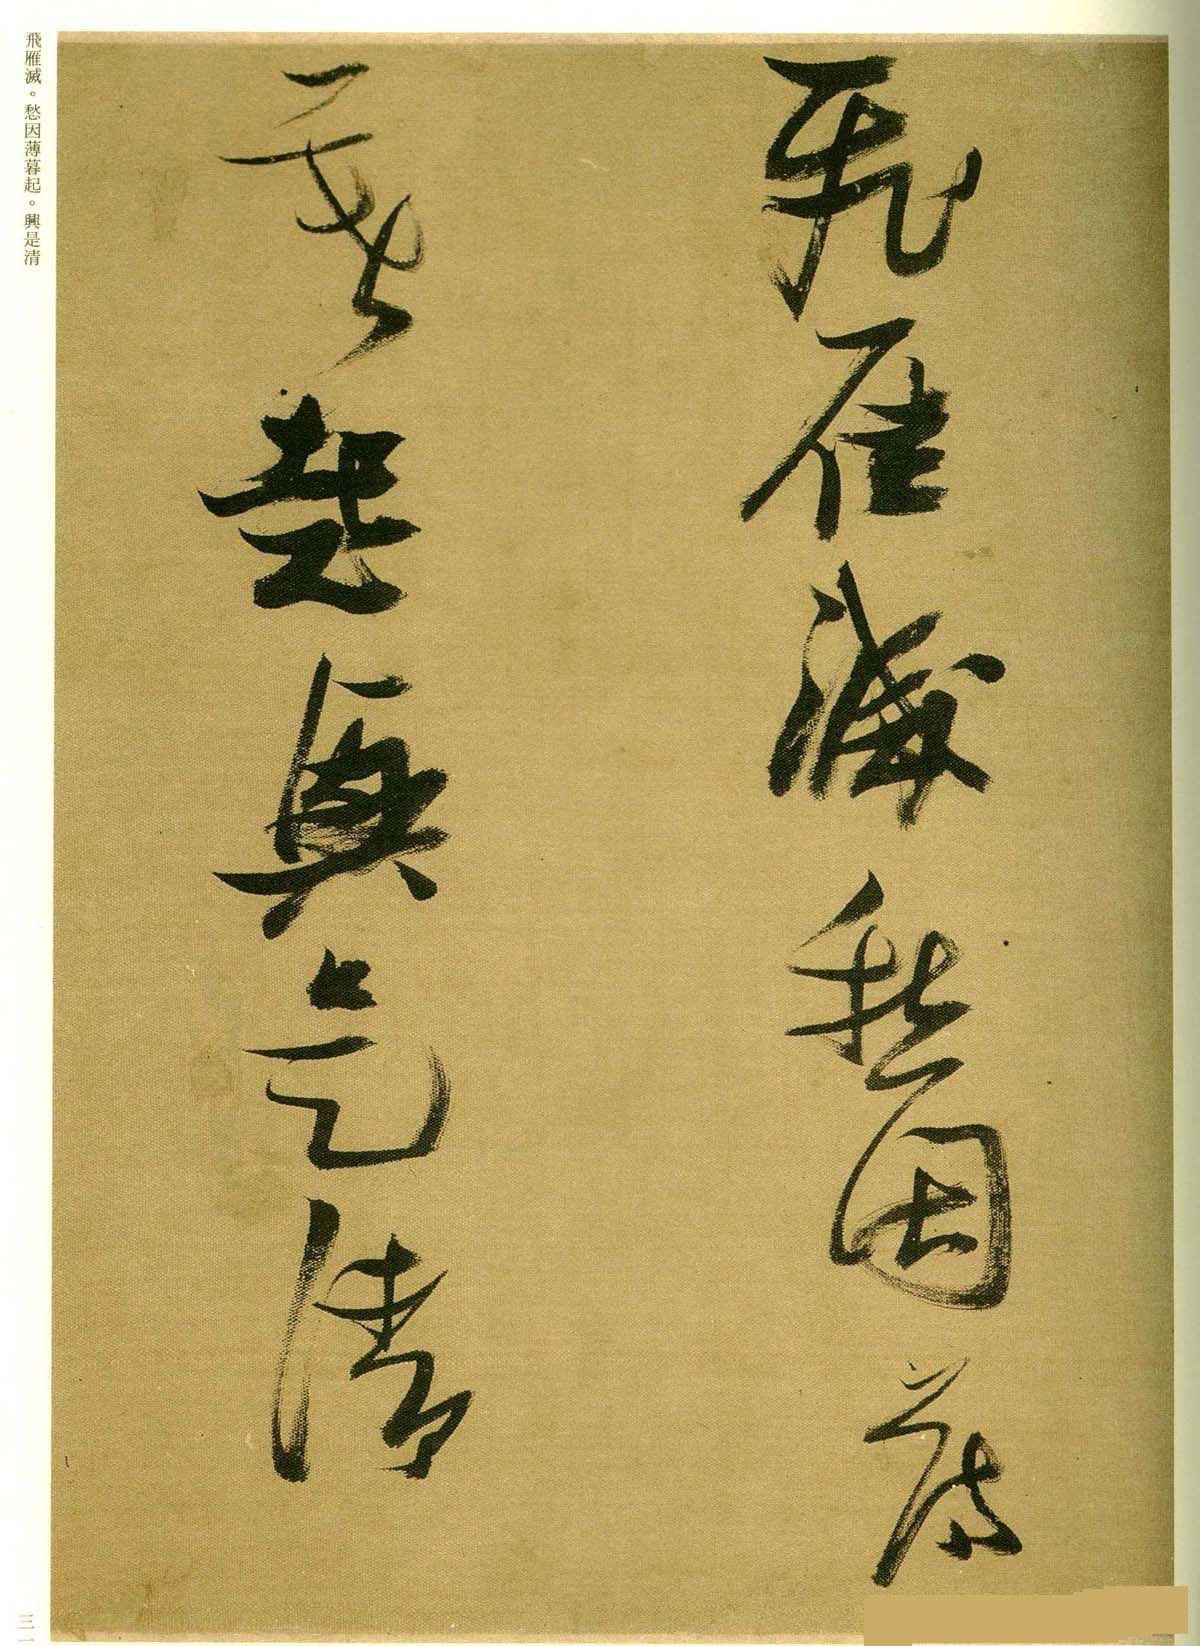 飛雁滅愁因薄
暮起興是清
飛雁滅。愁因薄暮起。興是清
三一